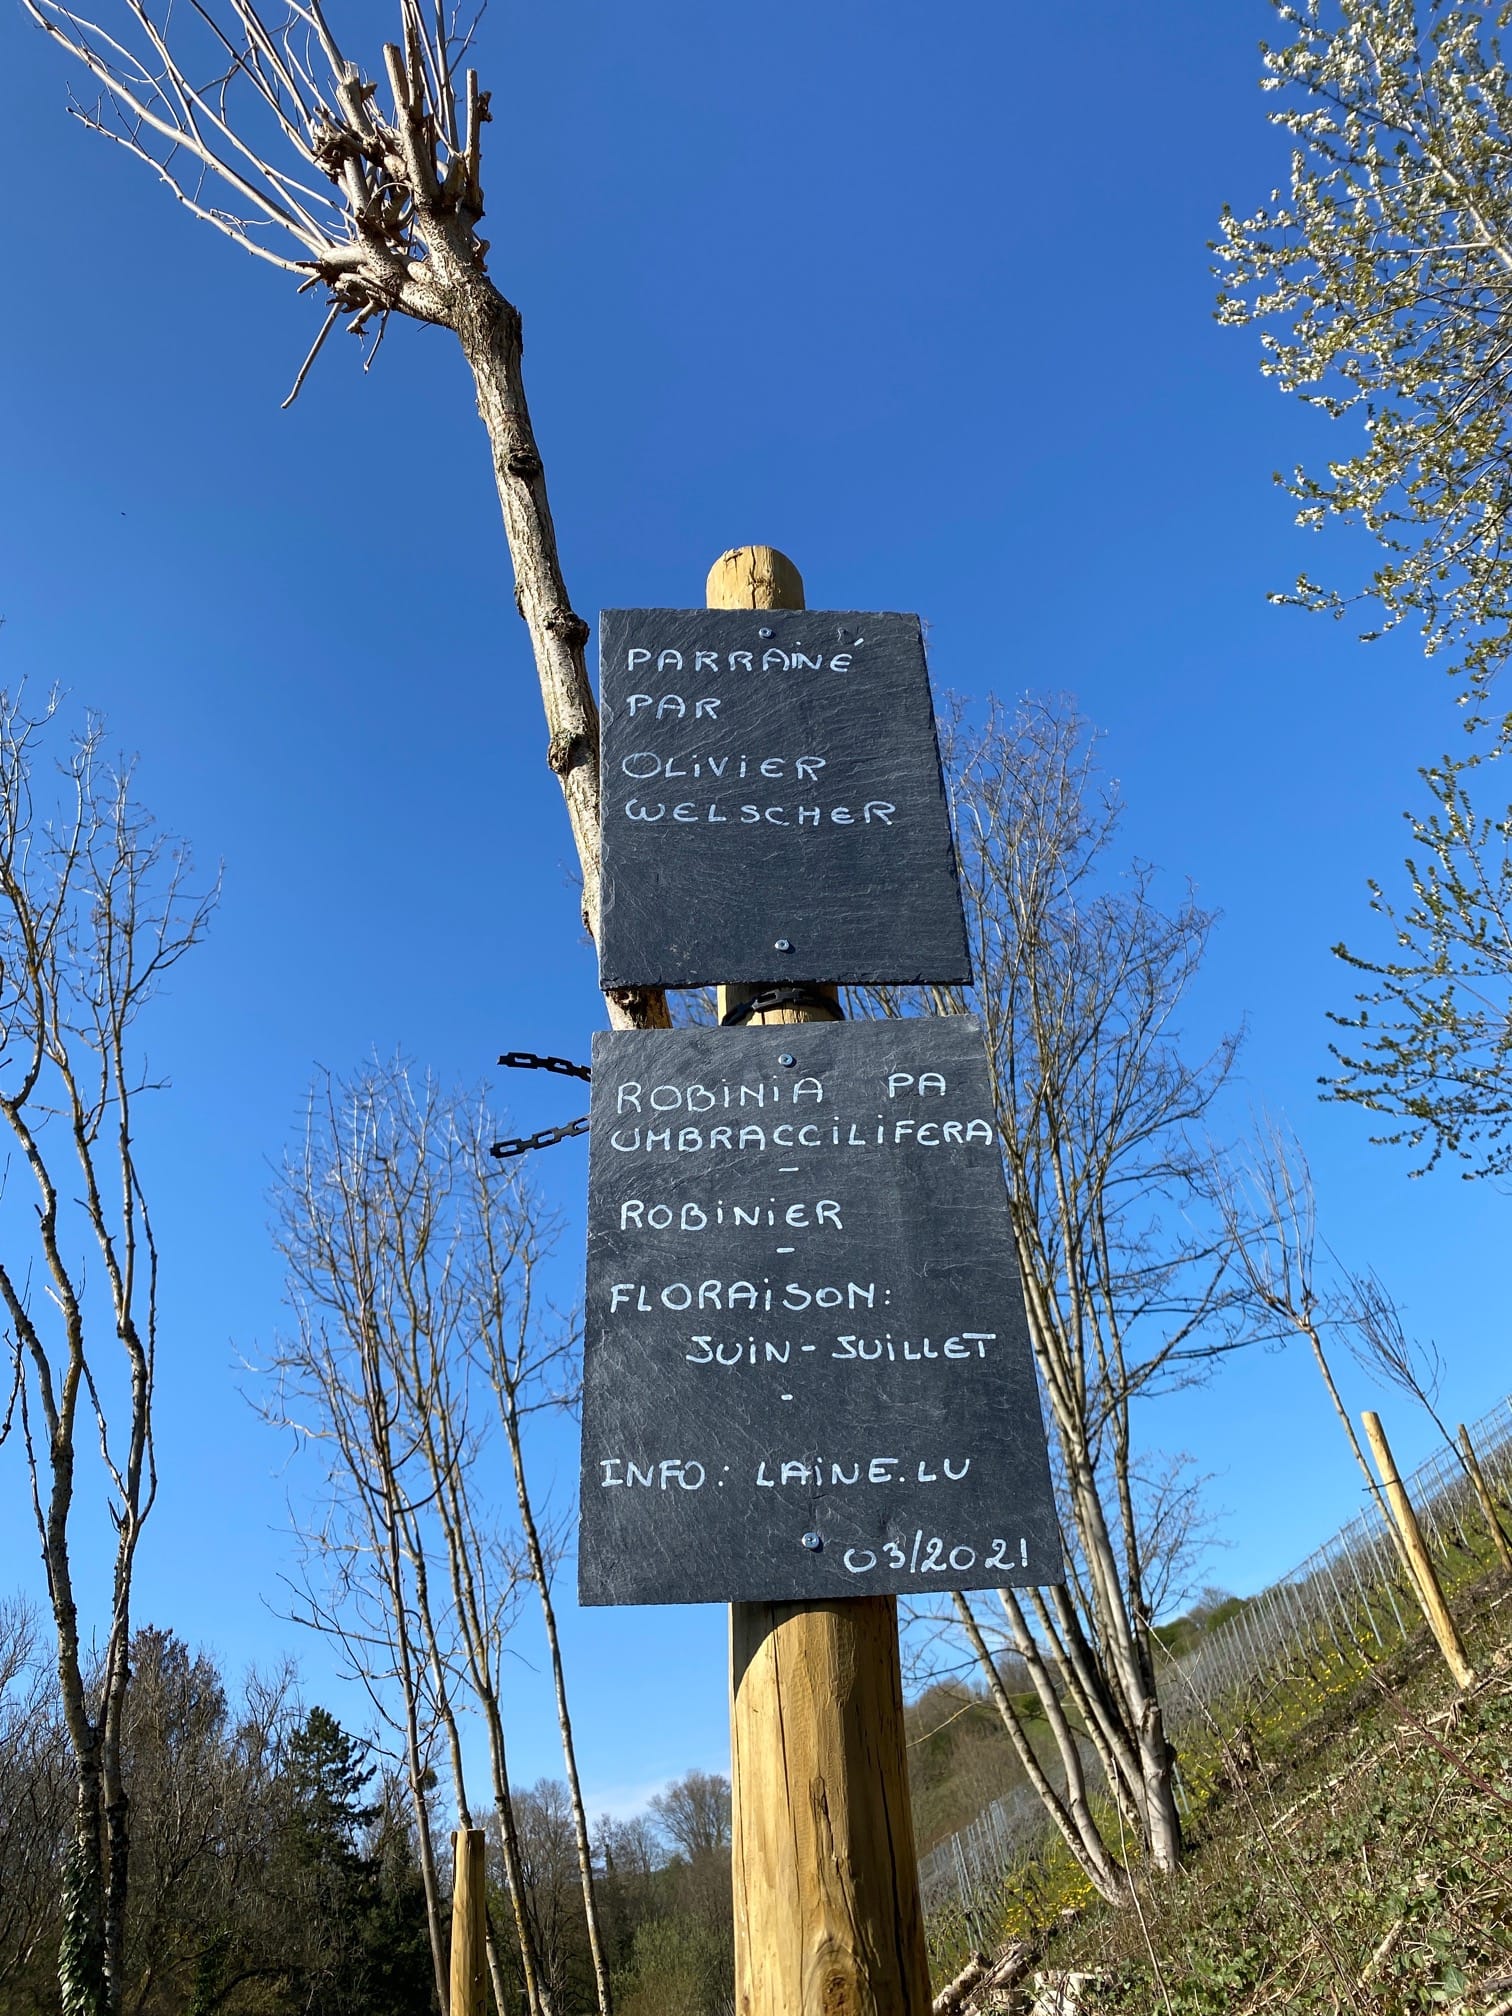 PARRAINÉ
PAR
OLIVIER
WELSCHER
ROBINIA PA
UMBRACCILIFERA
-
ROBINIER
-
FLORAISON:
JUIN - JUILLET
-
INFO: LAINE.LU
03/2021